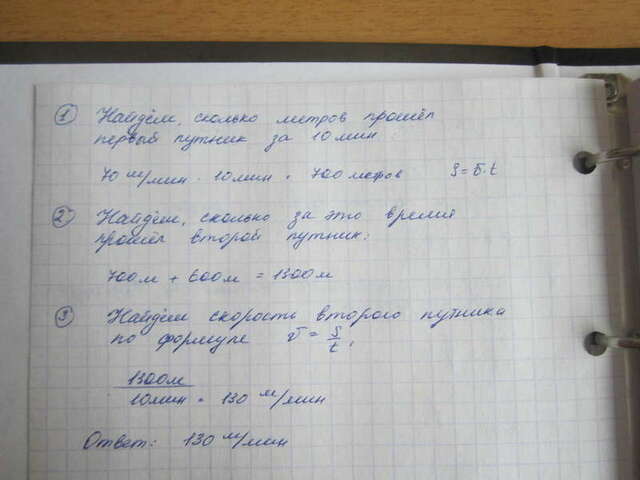 1 Найдём, сколько метров прошёл
первый путник за 10 мин:
70 м/мин · 10 мин = 700 метров S = v · t
2 Найдём, сколько за это время
прошёл второй путник:
700м + 600м = 1300м
3 Найдём скорость второго путника
по формуле v = S/t,
1300м
10мин = 130 м/мин
Ответ: 130 м/мин